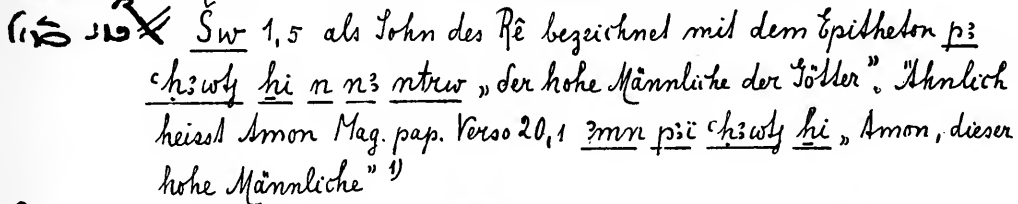 Šw 1,5 als Sohn des Rê bezeichnet mit dem Epitheton pꜣ
ꜥḥꜣwtj ḥi n nꜣ nṯrw „der hohe Männliche der Götter“. Ähnlich
heisst Amon Mag. pap. Verso 20,1 ꜣmn pꜣï ꜥḥꜣwtj ḥi „Amon, dieser
hohe Männliche“ 1)